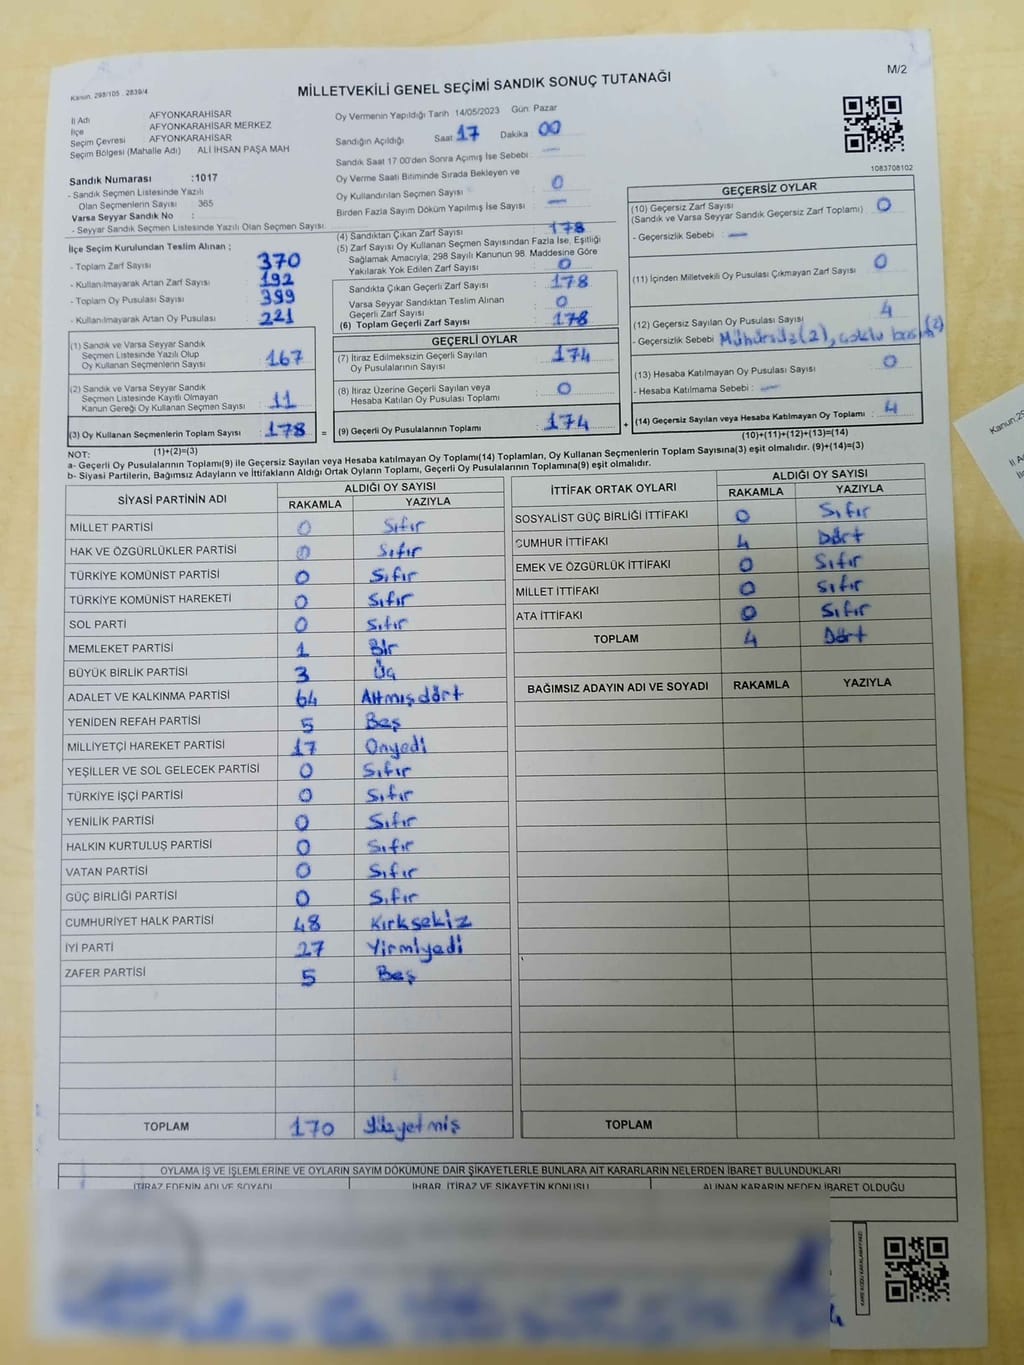 Kanun. 298/105 . 2839/4
MİLLETVEKİLİ GENEL SEÇİMİ SANDIK SONUÇ TUTANAĞI
M/2
İl Adı AFYONKARAHİSAR
İlçe AFYONKARAHİSAR MERKEZ
Seçim Çevresi AFYONKARAHİSAR
Seçim Bölgesi (Mahalle Adı) ALİ İHSAN PAŞA MAH
Sandık Numarası :1017
- Sandık Seçmen Listesinde Yazılı
Olan Seçmenlerin Sayısı : 365
Varsa Seyyar Sandık No :
- Seyyar Sandık Seçmen Listesinde Yazılı Olan Seçmen Sayısı
İlçe Seçim Kurulundan Teslim Alınan ;
- Toplam Zarf Sayısı 370
- Kullanılmayarak Artan Zarf Sayısı 192
- Toplam Oy Pusulası Sayısı 399
- Kullanılmayarak Artan Oy Pusulası 221
(1) Sandık ve Varsa Seyyar Sandık
Seçmen Listesinde Yazılı Olup
Oy Kullanan Seçmenlerin Sayısı 167
(2) Sandık ve Varsa Seyyar Sandık
Seçmen Listesinde Kayıtlı Olmayan
Kanun Gereği Oy Kullanan Seçmen Sayısı 11
(3) Oy Kullanan Seçmenlerin Toplam Sayısı 178 =
(1)+(2)=(3)
Oy Vermenin Yapıldığı Tarih 14/05/2023 Gün: Pazar
Sandığın Açıldığı Saat 17 Dakika 00
Sandık Saat 17:00'den Sonra Açılmış İse Sebebi : —
Oy Verme Saati Bitiminde Sırada Bekleyen ve
Oy Kullandırılan Seçmen Sayısı 0
Birden Fazla Sayım Döküm Yapılmış İse Sayısı —
(4) Sandıktan Çıkan Zarf Sayısı 178
(5) Zarf Sayısı Oy Kullanan Seçmen Sayısından Fazla İse, Eşitliği
Sağlamak Amacıyla; 298 Sayılı Kanunun 98. Maddesine Göre
Yakılarak Yok Edilen Zarf Sayısı 0
Sandıkta Çıkan Geçerli Zarf Sayısı 178
Varsa Seyyar Sandıktan Teslim Alınan
Geçerli Zarf Sayısı 0
(6) Toplam Geçerli Zarf Sayısı 178
GEÇERLİ OYLAR
(7) İtiraz Edilmeksizin Geçerli Sayılan
Oy Pusulalarının Sayısı 174
(8) İtiraz Üzerine Geçerli Sayılan veya
Hesaba Katılan Oy Pusulası Toplamı 0
(9) Geçerli Oy Pusulalarının Toplamı 174 +
1083708102
GEÇERSİZ OYLAR
(10) Geçersiz Zarf Sayısı 0
(Sandık ve Varsa Seyyar Sandık Geçersiz Zarf Toplamı)
- Geçersizlik Sebebi : —
(11) İçinden Milletvekili Oy Pusulası Çıkmayan Zarf Sayısı 0
(12) Geçersiz Sayılan Oy Pusulası Sayısı 4
- Geçersizlik Sebebi Mühürsüz(2), çoklu basım(2)
(13) Hesaba Katılmayan Oy Pusulası Sayısı 0
- Hesaba Katılmama Sebebi : —
(14) Geçersiz Sayılan veya Hesaba Katılmayan Oy Toplamı 4
(10)+(11)+(12)+(13)=(14)
NOT:
a- Geçerli Oy Pusulalarının Toplamı(9) ile Geçersiz Sayılan veya Hesaba katılmayan Oy Toplamı(14) Toplamları, Oy Kullanan Seçmenlerin Toplam Sayısına(3) eşit olmalıdır. (9)+(14)=(3)
b- Siyasi Partilerin, Bağımsız Adayların ve İttifakların Aldığı Ortak Oyların Toplamı, Geçerli Oy Pusulalarının Toplamına(9) eşit olmalıdır.
SİYASİ PARTİNİN ADI ALDIĞI OY SAYISI
RAKAMLA YAZIYLA
MİLLET PARTİSİ 0 Sıfır
HAK VE ÖZGÜRLÜKLER PARTİSİ 0 Sıfır
TÜRKİYE KOMÜNİST PARTİSİ 0 Sıfır
TÜRKİYE KOMÜNİST HAREKETİ 0 Sıfır
SOL PARTİ 0 Sıfır
MEMLEKET PARTİSİ 1 Bir
BÜYÜK BİRLİK PARTİSİ 3 Üç
ADALET VE KALKINMA PARTİSİ 64 Altmışdört
YENİDEN REFAH PARTİSİ 5 Beş
MİLLİYETÇİ HAREKET PARTİSİ 17 Onyedi
YEŞİLLER VE SOL GELECEK PARTİSİ 0 Sıfır
TÜRKİYE İŞÇİ PARTİSİ 0 Sıfır
YENİLİK PARTİSİ 0 Sıfır
HALKIN KURTULUŞ PARTİSİ 0 Sıfır
VATAN PARTİSİ 0 Sıfır
GÜÇ BİRLİĞİ PARTİSİ 0 Sıfır
CUMHURİYET HALK PARTİSİ 48 Kırksekiz
İYİ PARTİ 27 Yirmiyedi
ZAFER PARTİSİ 5 Beş
TOPLAM 170 Yüzyetmiş
İTTİFAK ORTAK OYLARI ALDIĞI OY SAYISI
RAKAMLA YAZIYLA
SOSYALİST GÜÇ BİRLİĞİ İTTİFAKI 0 Sıfır
CUMHUR İTTİFAKI 4 Dört
EMEK VE ÖZGÜRLÜK İTTİFAKI 0 Sıfır
MİLLET İTTİFAKI 0 Sıfır
ATA İTTİFAKI 0 Sıfır
TOPLAM 4 Dört
BAĞIMSIZ ADAYIN ADI VE SOYADI RAKAMLA YAZIYLA
TOPLAM
OYLAMA İŞ VE İŞLEMLERİNE VE OYLARIN SAYIM DÖKÜMÜNE DAİR ŞİKAYETLERLE BUNLARA AİT KARARLARIN NELERDEN İBARET BULUNDUKLARI
İTİRAZ EDENİN ADI VE SOYADI İHBAR, İTİRAZ VE ŞİKAYETİN KONUSU ALINAN KARARIN NEDEN İBARET OLDUĞU
Kanun.29
İl A
İlç